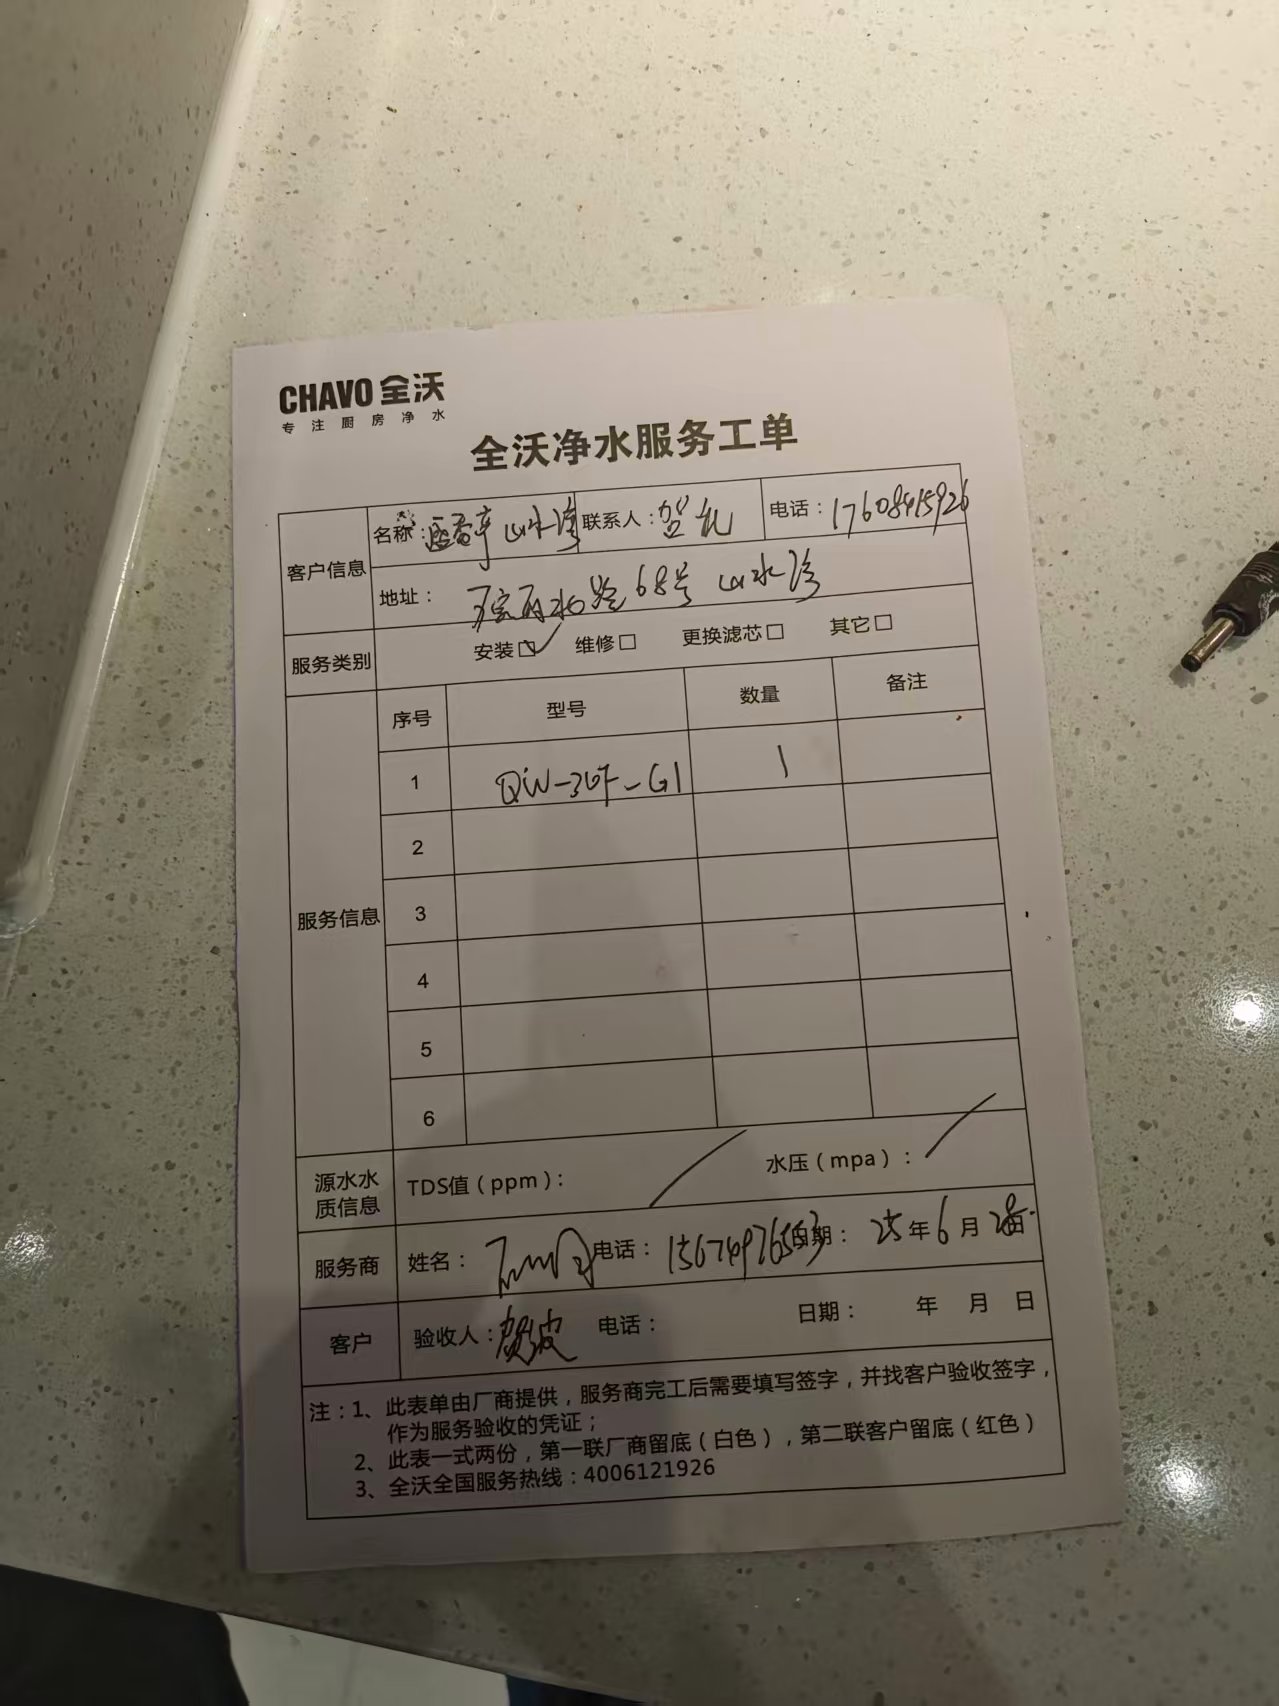 CHAVO 全沃
专注厨房净水
全沃净水服务工单
客户信息 名称： 山水湾 联系人：贺礼 电话：17608415926
地址： 路68号 山水湾
服务类别 安装☑ 维修□ 更换滤芯□ 其它□
服务信息 序号 型号 数量 备注
1 QW-30F-G1 1
2
3
4
5
6
源水水质信息 TDS值（ppm）： / 水压（mpa）： /
服务商 姓名： 电话：15674976553 日期： 25年6月28日
客户 验收人：贺波 电话： 日期： 年 月 日
注：1、此表单由厂商提供，服务商完工后需要填写签字，并找客户验收签字，
作为服务验收的凭证；
2、此表一式两份，第一联厂商留底（白色），第二联客户留底（红色）
3、全沃全国服务热线：4006121926